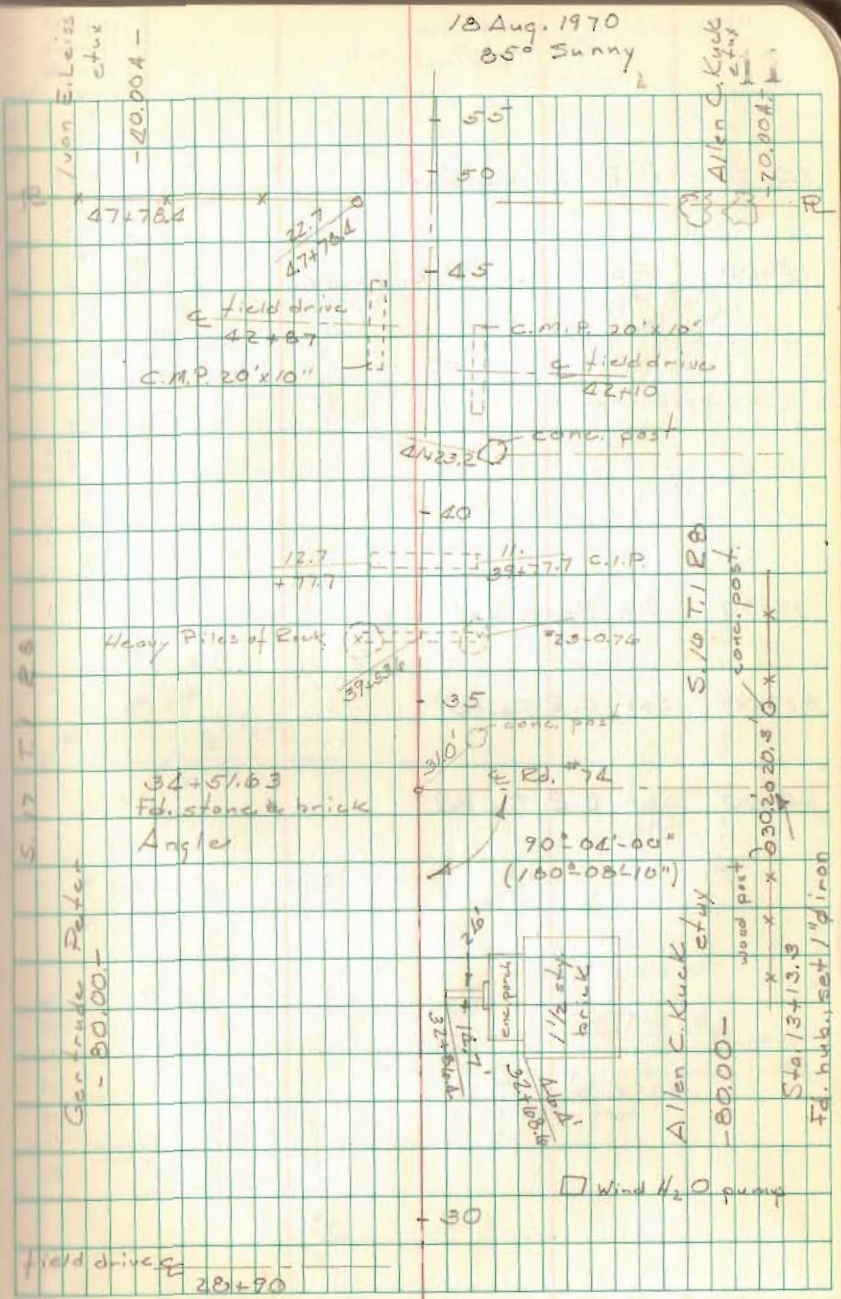 18 Aug. 1970
85° Sunny
Ivan E. Leiss
etux
-40.00A-
Allen C. Kuck
etux
-20.00A-
55
50
47+78.4
22.7
47+78.4
45
℄ field drive
42+87
C.M.P. 20'x10"
C.M.P. 20'x10"
℄ field drive
42+10
conc. post
41+23.2
40
12.7
+77.7
11.
39+77.7 C.I.P.
Heavy Piles of Rock
39+53.6
#23-0.74
35
S. 17 T.1 R8
S. 16 T.1 R8
conc. post
31.0-
conc. post
℄ Rd. #74
34+51.63
Fd. stone & brick
Angle
90°-04'-00"
(180°-08'-10")
Gertrude Peter
-80.00-
enc. porch
1 1/2 sty.
brick
Allen C. Kuck
etux
-80.00-
wood post
30.20
20.3'
Sta. 13+13.3
Fd. hub., set 1"Ø iron
Wind H₂O pump
30
field drive ℄
28+90